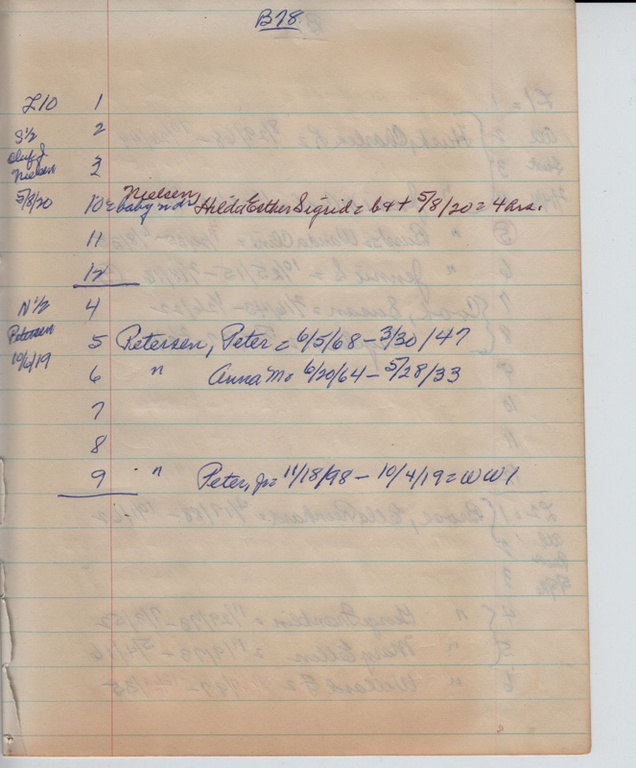 B78.
L10 1
S1/2 2
Nielsen 3
5/8/20 10= Nielsen baby Hilda Esther Sigrid = b&+ 5/8/20 = 4 hrs.
11
12
N1/2 4
Petersen 5 Petersen, Peter = 6/5/68 - 3/30/47
10/6/19
6 " Anna M= 6/20/64 - 5/28/33
7
8
9 " Peter, Jr= 11/18/98 - 10/4/19 = WW1